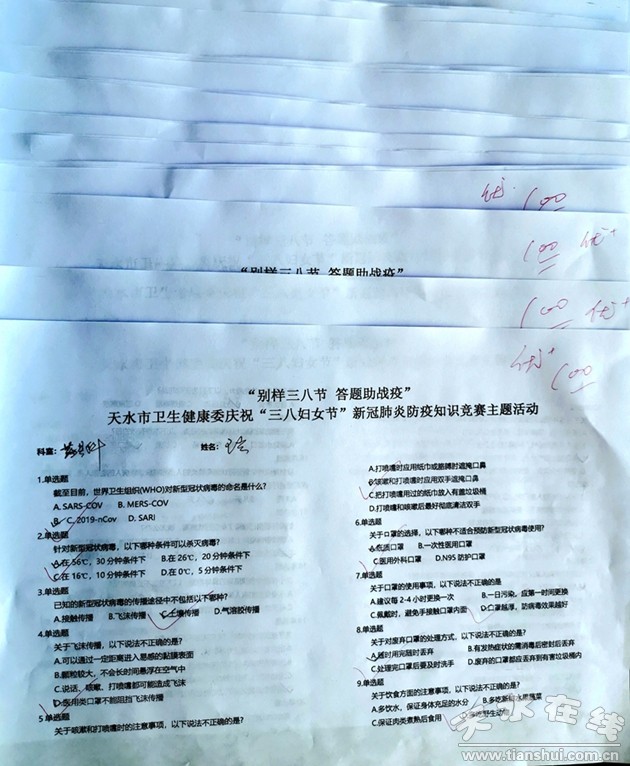 优
100
100 优+
"别样三八节 答题助战疫"
100 优+
优+ 100
"别样三八节 答题助战疫"
天水市卫生健康委庆祝"三八妇女节"新冠肺炎防疫知识竞赛主题活动
科室: 姓名:
1.单选题
截至目前，世界卫生组织(WHO)对新型冠状病毒的命名是什么?
A. SARS-COV B. MERS-COV
C. 2019-nCov D. SARI
2.单选题
针对新型冠状病毒，以下哪种条件可以杀灭病毒?
A.在 56℃，30 分钟条件下 B.在 26℃，20 分钟条件下
C.在 16℃，10 分钟条件下 D.在 0℃，5 分钟条件下
3.单选题
已知的新型冠状病毒的传播途径中不包括以下哪种?
A.接触传播 B.飞沫传播 C.土壤传播 D.气溶胶传播
4.单选题
关于飞沫传播，以下说法不正确的是?
A.可以通过一定距离进入易感的黏膜表面
B.颗粒较大，不会长时间悬浮在空气中
C.说话、咳嗽、打喷嚏都可能造成飞沫
D.医用类口罩不能阻挡飞沫传播
5 单选题
关于咳嗽和打喷嚏时的注意事项，以下说法不正确的是?
A.打喷嚏时应用纸巾或胳膊肘遮掩口鼻
B.咳嗽和打喷嚏时应用双手遮掩口鼻
C.把打喷嚏用过的纸巾放入有盖垃圾桶
D.打喷嚏和咳嗽后最好彻底清洁双手
6.单选题
关于口罩的选择，以下哪种不适合预防新型冠状病毒使用?
A.纸质口罩 B.一次性医用口罩
C.医用外科口罩 D.N95 防护口罩
7.单选题
关于口罩的使用事项，以下说法不正确的是
A.建议每 2-4 小时更换一次 B.一旦污染，应第一时间更换
C.佩戴时，避免手接触口罩内面 D.口罩越厚，防病毒效果越好
8.单选题
关于对废弃口罩的处理方式，以下说法不正确的是?
A.随时用完随时丢弃 B.有发热症状的需消毒后密封后丢弃
C.处理完口罩后要及时洗手 D.废弃的口罩都应丢弃到有害垃圾桶内
9.单选题
关于饮食方面的注意事项，以下说法不正确的是?
A.多饮水，保证身体充足的水分 B.多吃新鲜水果蔬菜
C.保证肉类煮熟后食用
天水在线
www.tianshui.com.cn